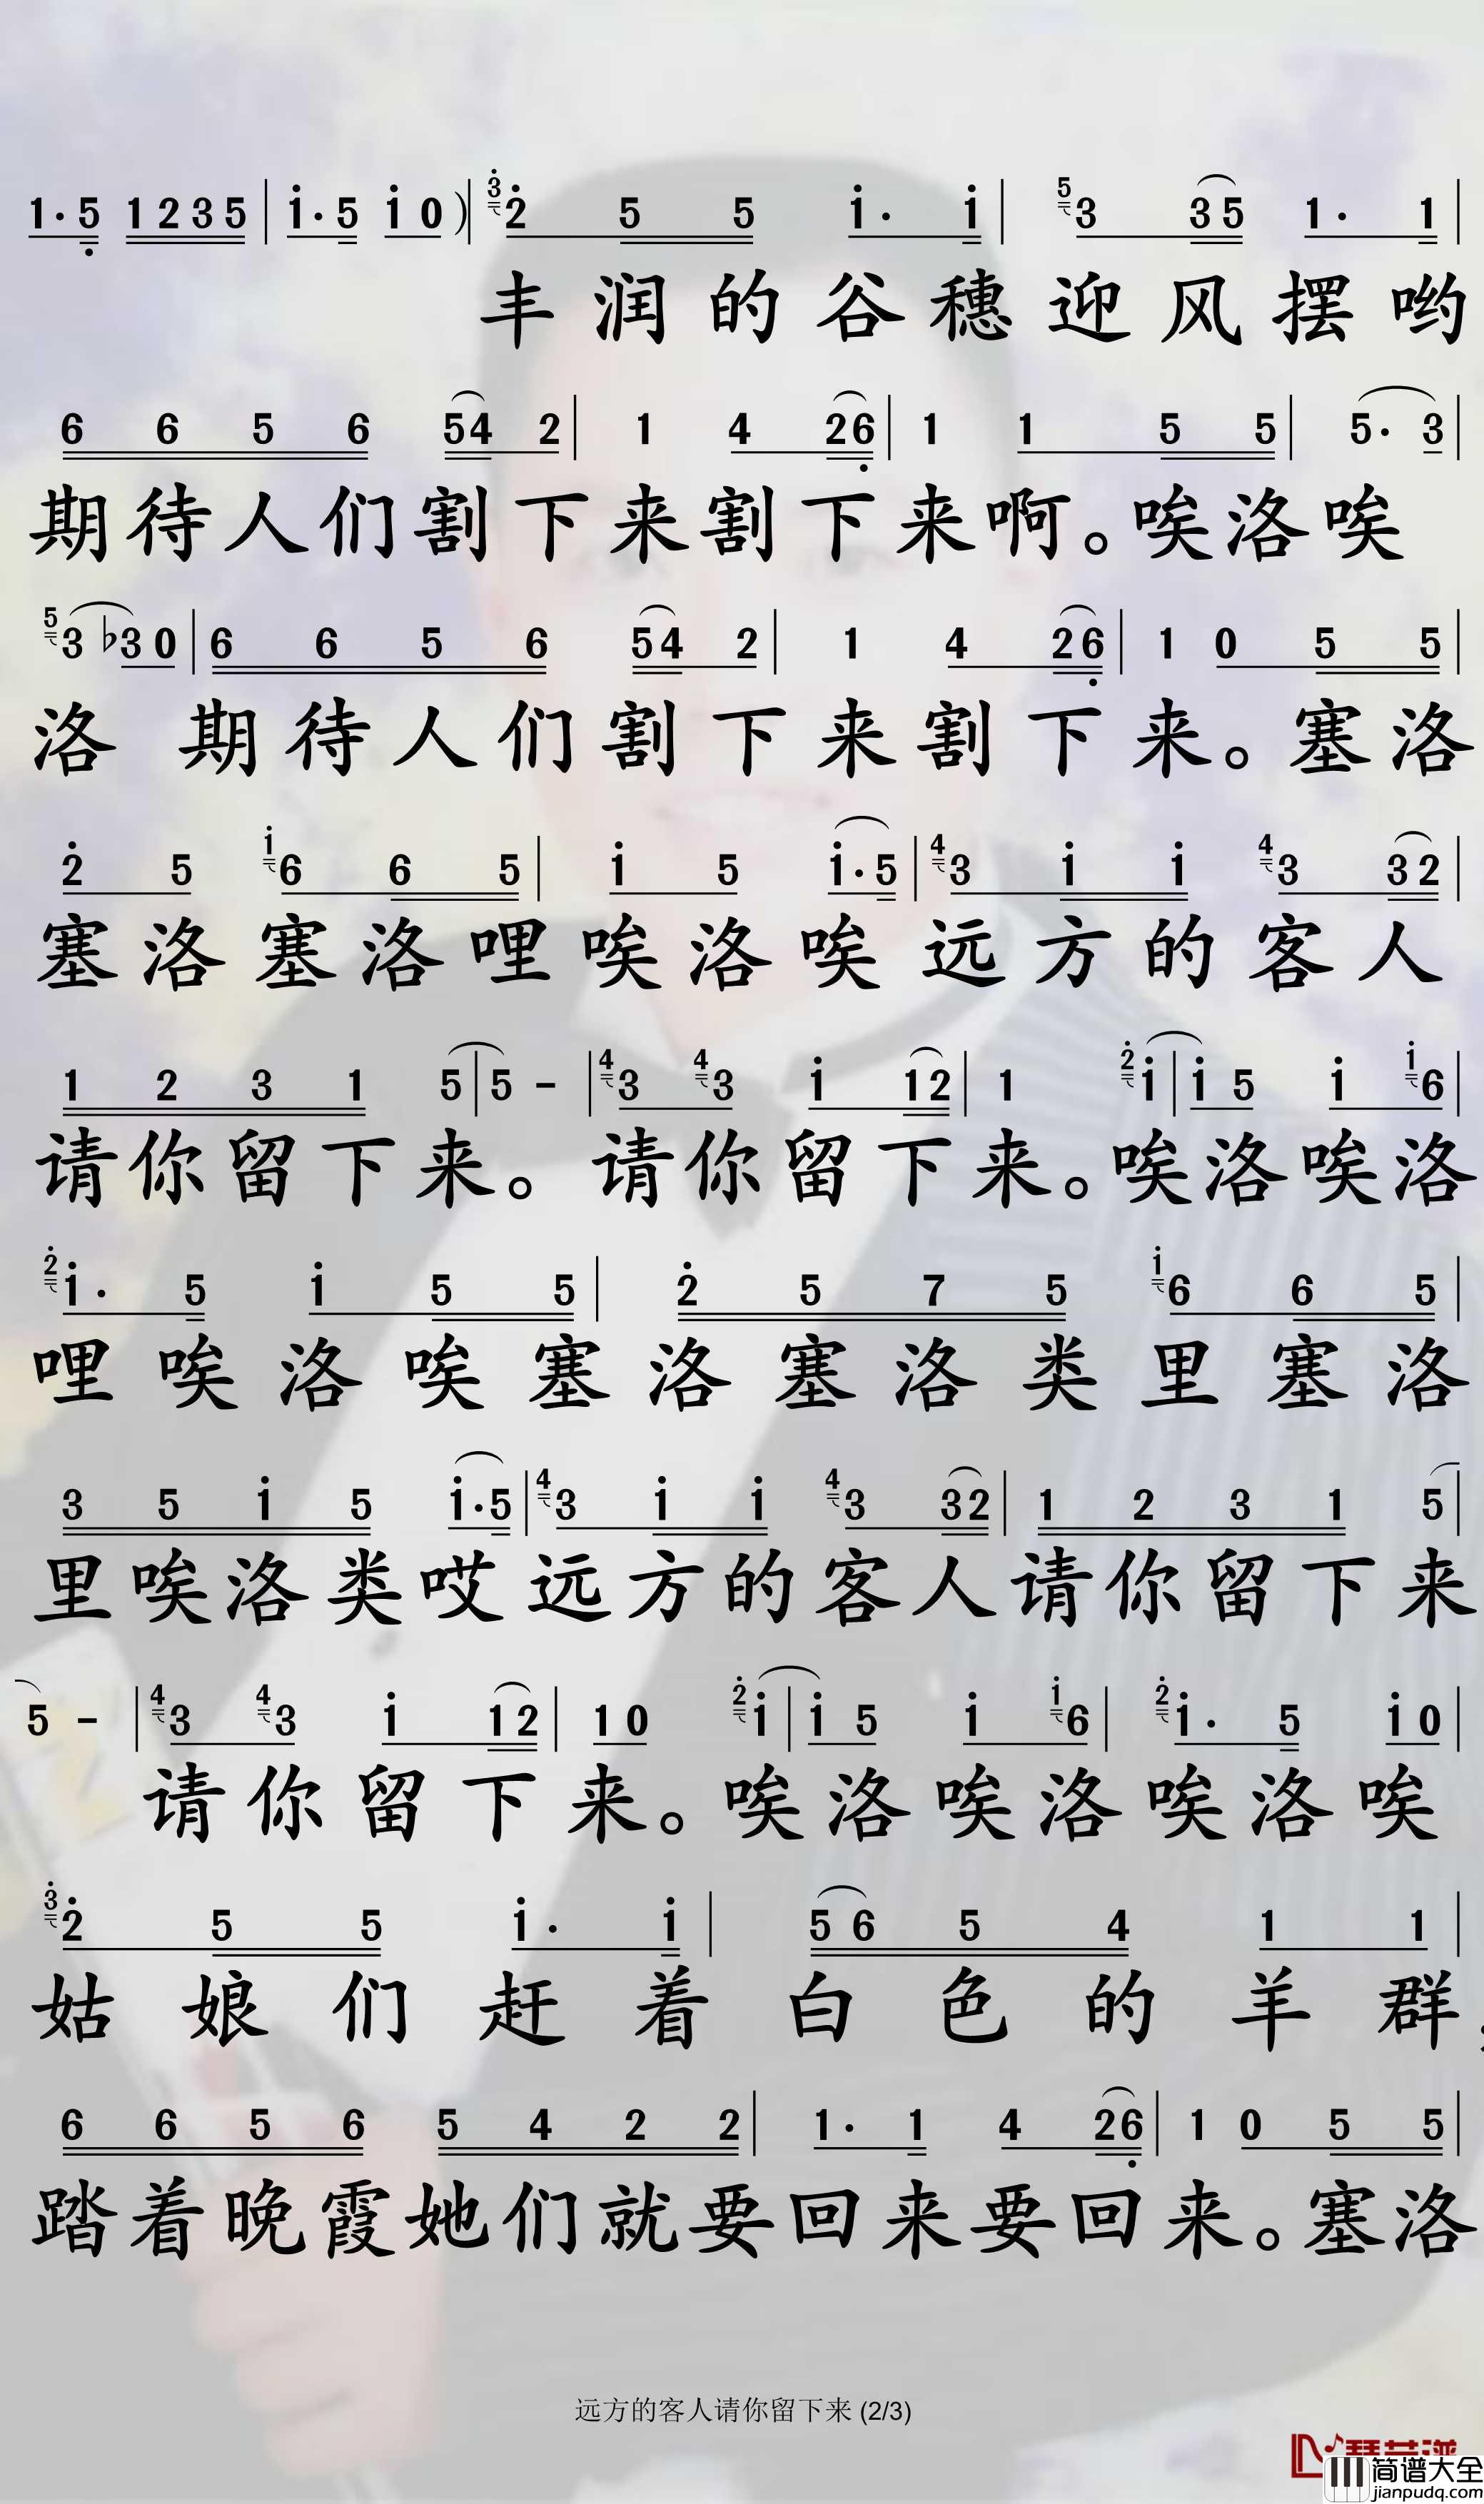 1·5 1235|i·5 i0)|3 2 5 5 i· i|5 3 35 1· 1|
丰润的谷穗迎风摆哟
6 6 5 6 54 2|1 4 26|1 1 5 5|5· 3|
期待人们割下来割下来啊。唉洛唉
5 3 b3 0|6 6 5 6 54 2|1 4 26|1 0 5 5|
洛 期待人们割下来割下来。塞洛
2 5 i 6 6 5|i 5 i·5|4 3 i i 4 3 32|
塞洛塞洛哩唉洛唉远方的客人
1 2 3 1 5|5 -|4 3 4 3 i 12|1 2 i|i 5 i i 6|
请你留下来。请你留下来。唉洛唉洛
2 i· 5 i 5 5|2 5 7 5 i 6 6 5|
哩唉洛唉塞洛塞洛类里塞洛
3 5 i 5 i·5|4 3 i i 4 3 32|1 2 3 1 5|
里唉洛类哎远方的客人请你留下来
5 -|4 3 4 3 i 12|10 2 i|i 5 i i 6|2 i· 5 i0|
请你留下来。唉洛唉洛唉洛唉
3 2 5 5 i· i|56 5 4 1 1|
姑娘们赶着白色的羊群,
6 6 5 6 5 4 2 2|1· 1 4 26|1 0 5 5|
踏着晚霞她们就要回来要回来。塞洛
远方的客人请你留下来 (2/3)
简谱大全
jianpudq.com